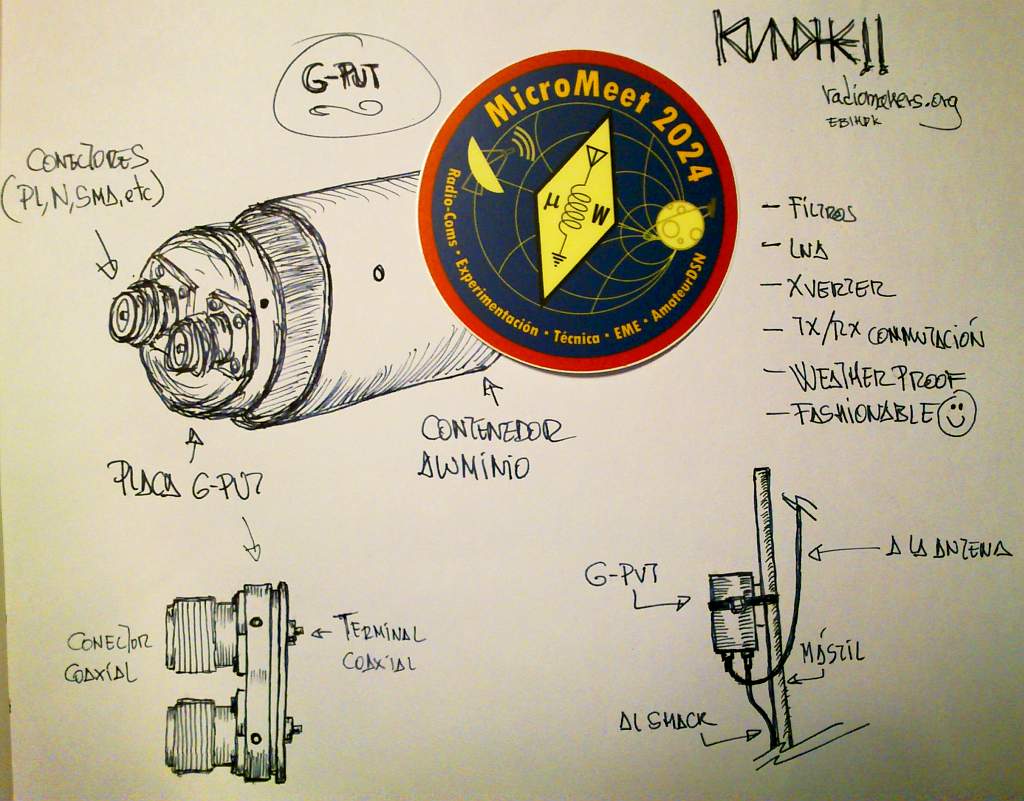 G-PUT
KUNDHE!!
radiomakers.org
CONECTORES
(PL, N, SMA, etc)
MicroMeet 2024
μ W
Radio-Coms · Experimentación · Técnica · EME · AmateurDSN
- FILTROS
- LNA
- XVERTER
- TX/RX COMMUTACIÓN
- WEATHER PROOF
- FASHIONABLE
CONTENEDOR
ALUMINIO
PLACA G-PUT
CONECTOR
COAXIAL
TERMINAL
COAXIAL
G-PUT
A LA ANTENA
MÁSTIL
AL SHACK